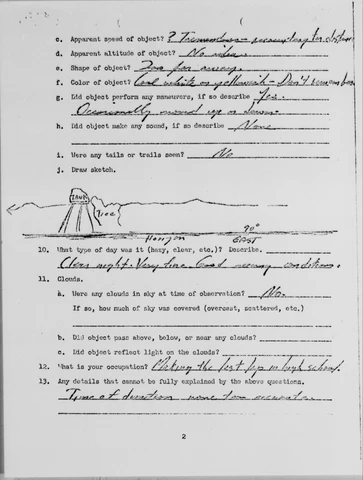 c. Apparent speed of object? ? Tremendous - according to distance
d. Apparent altitude of object? No idea
e. Shape of object? Too far away
f. Color of object? Cool white or yellowish - Don't remember
g. Did object perform any maneuvers, if so describe Yes.
Occasionally moved up or down
h. Did object make any sound, if so describe None
i. Were any tails or trails seen? No
j. Draw sketch.
TANK
Tree
Horizon
90°
EAST
10. What type of day was it (hazy, clear, etc.)? Describe.
Clear night. Very fine. Good seeing conditions.
11. Clouds.
a. Were any clouds in sky at time of observation? No.
If so, how much of sky was covered (overcast, scattered, etc.)
b. Did object pass above, below, or near any clouds?
c. Did object reflect light on the clouds?
12. What is your occupation? the last lap in high school.
13. Any details that cannot be fully explained by the above questions.
Time of duration none too accurate.
2